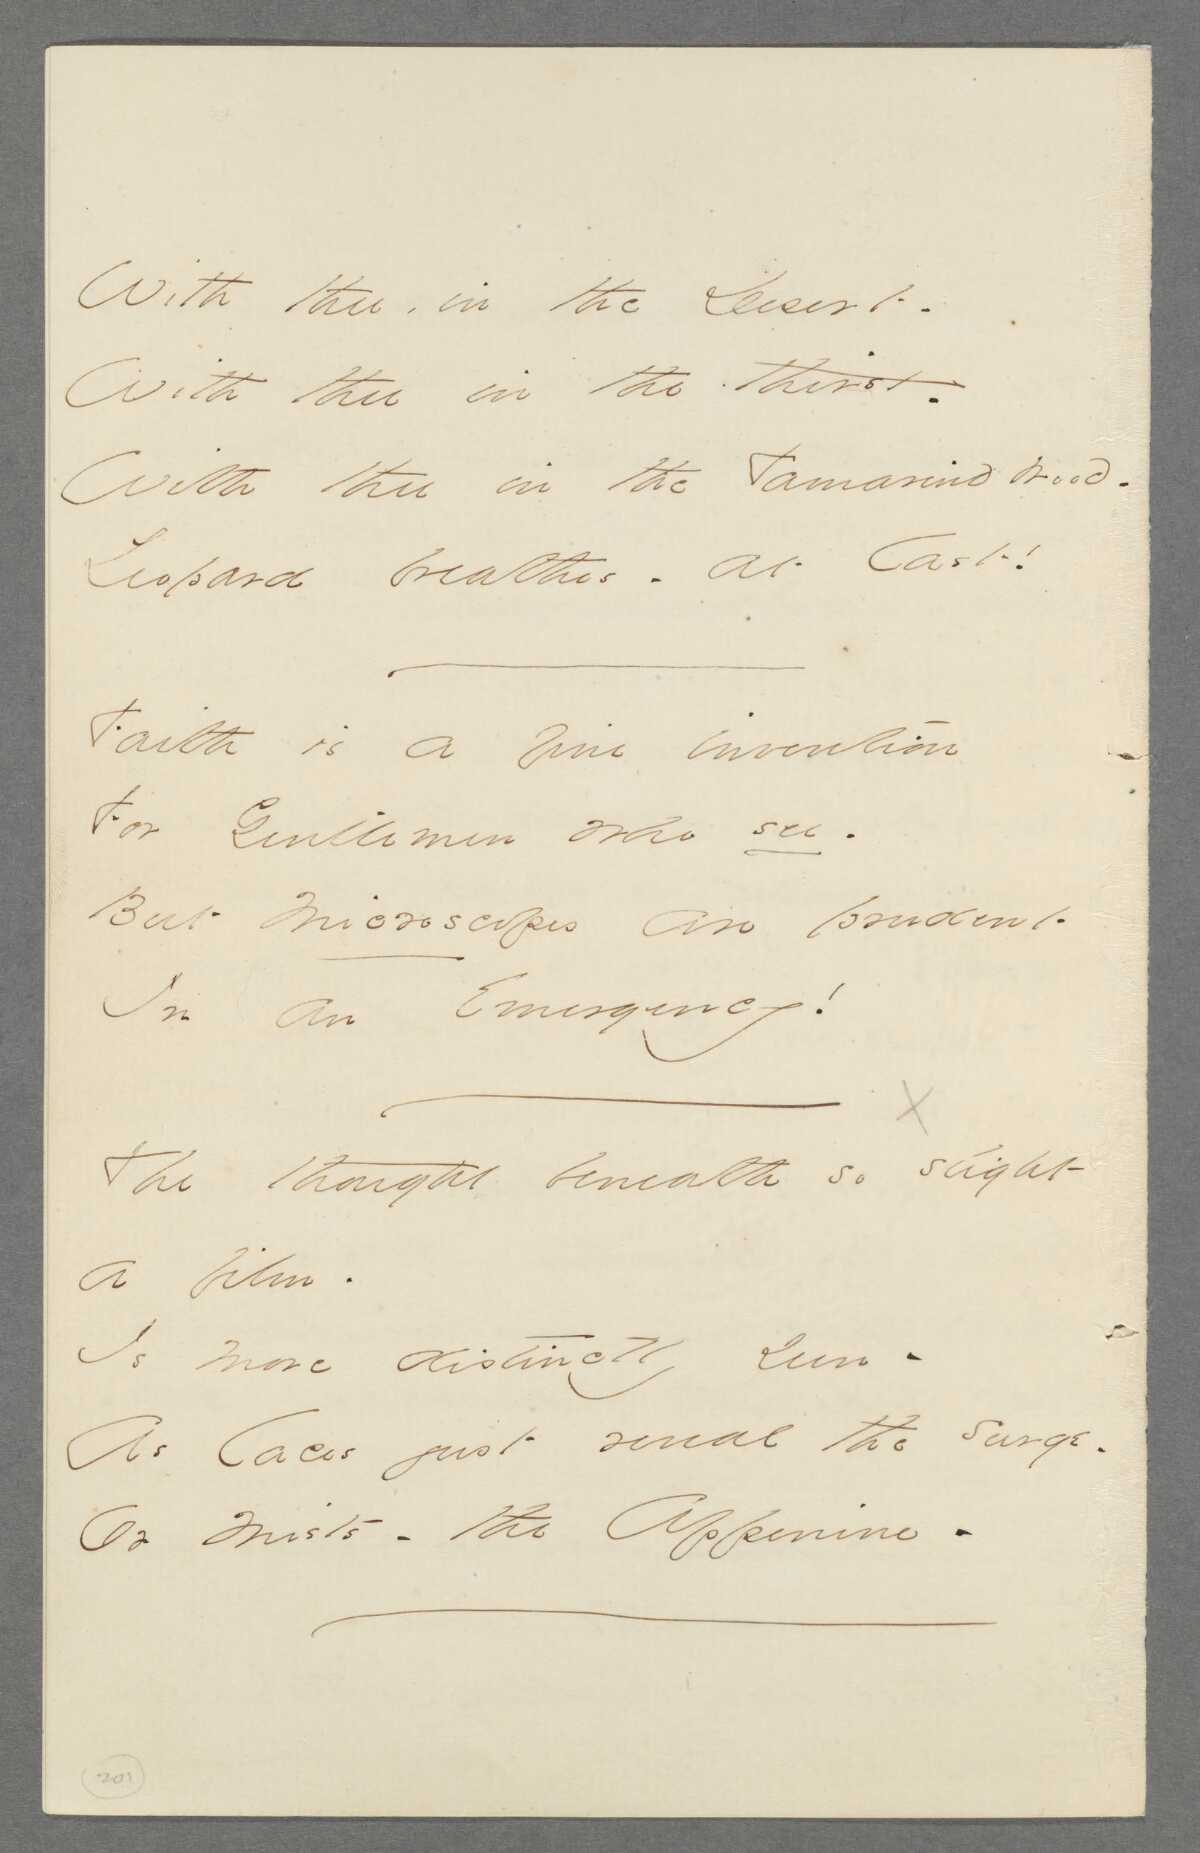 With thee, in the Desert -
With thee in the thirst -
With thee in the Tamarind wood -
Leopard breathes - at last!
Faith is a fine invention
For Gentlemen who see -
But Microscopes are prudent
In an Emergency!
X
The thought beneath so slight
a film -
Is more distinctly seen -
As laces just reveal the surge -
Or Mists - the Appenine -
201